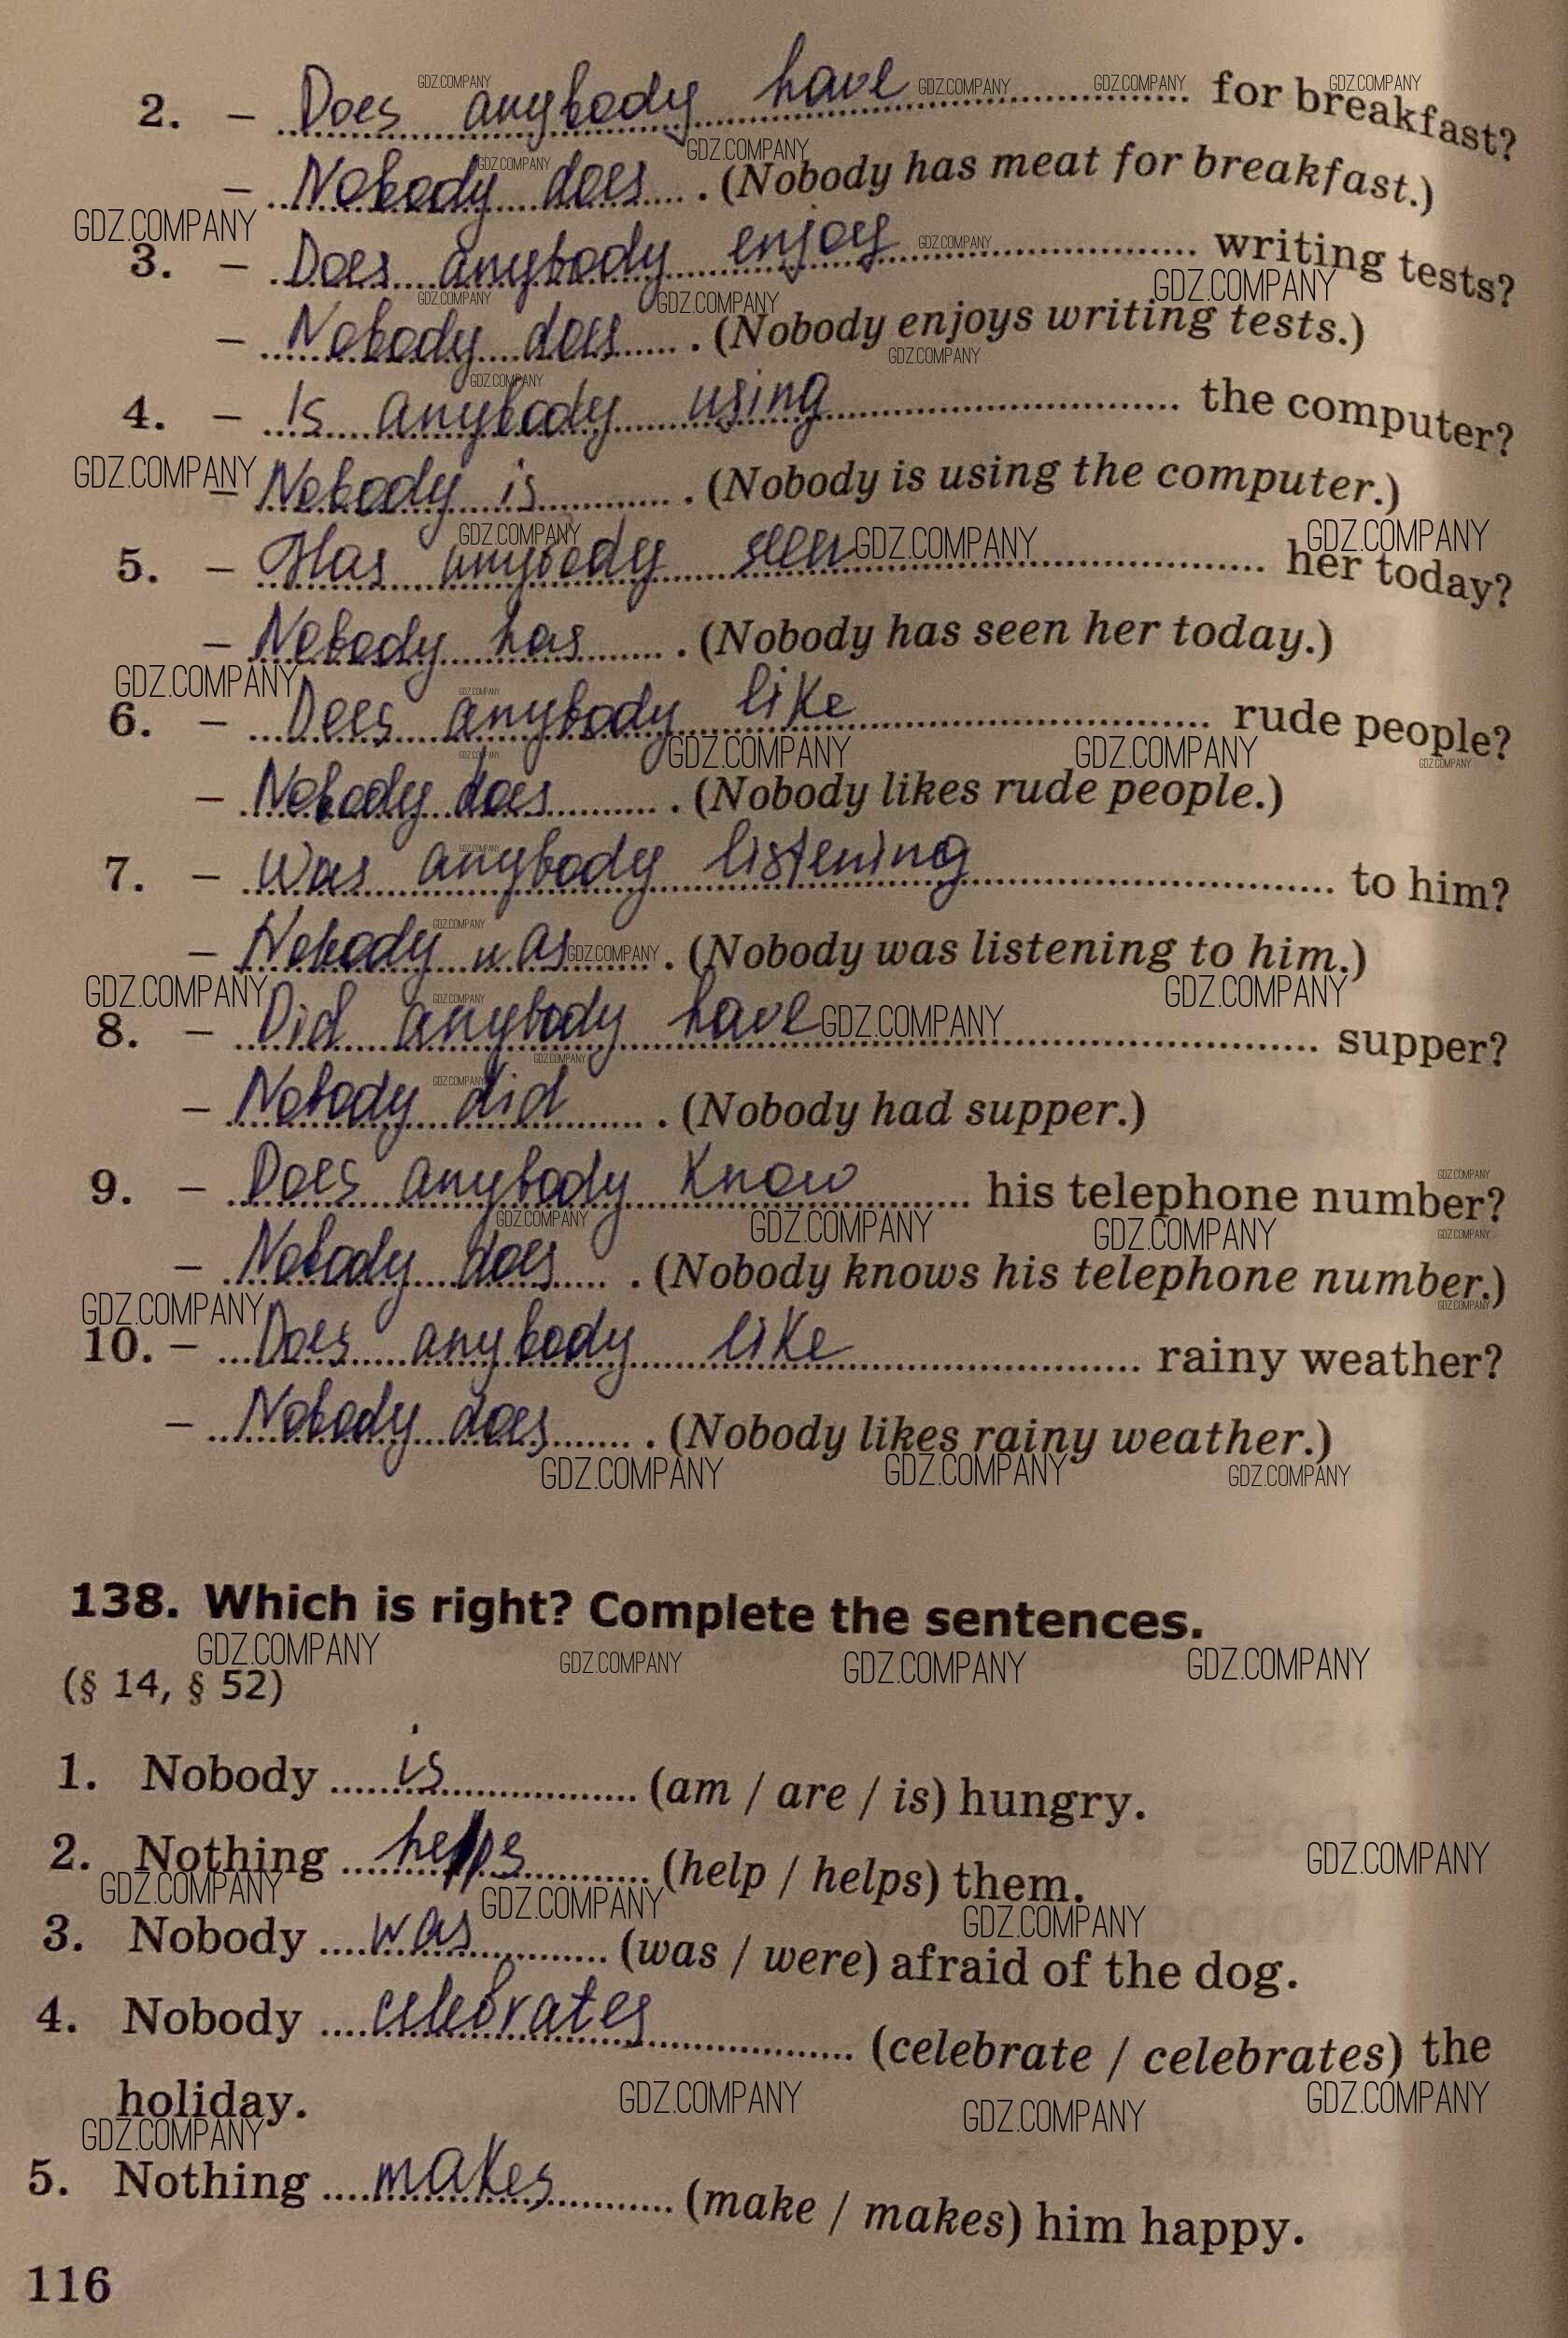 2. – Does anybody have for breakfast?
– Nobody does . (Nobody has meat for breakfast.)
3. – Does anybody enjoy writing tests?
– Nobody does . (Nobody enjoys writing tests.)
4. – Is anybody using the computer?
– Nobody is . (Nobody is using the computer.)
5. – Has anybody seen her today?
– Nobody has . (Nobody has seen her today.)
6. – Does anybody like rude people?
– Nobody does . (Nobody likes rude people.)
7. – Was anybody listening to him?
– Nobody was . (Nobody was listening to him.)
8. – Did anybody have supper?
– Nobody did . (Nobody had supper.)
9. – Does anybody know his telephone number?
– Nobody does . (Nobody knows his telephone number.)
10. – Does anybody like rainy weather?
– Nobody does . (Nobody likes rainy weather.)
GDZ.COMPANY
138. Which is right? Complete the sentences.
(§ 14, § 52)
1. Nobody is (am / are / is) hungry.
2. Nothing helps (help / helps) them.
3. Nobody was (was / were) afraid of the dog.
4. Nobody celebrates (celebrate / celebrates) the
holiday.
5. Nothing makes (make / makes) him happy.
116